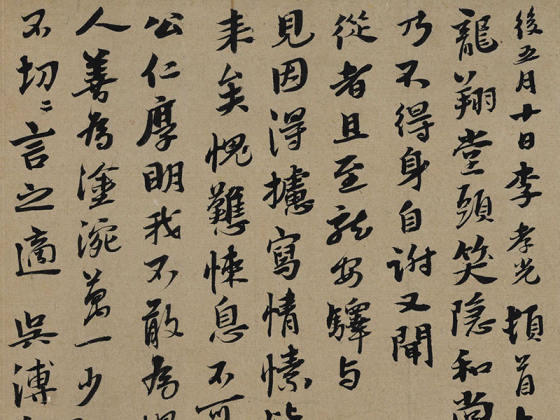 後五月十日李孝光頓首
龍翔堂頭笑隐和尚
乃不得身自謝又聞
從者且至就安驛与
見因得攄寫情愫
来矣愧戁悚息不可
公仁厚明我不敢為
人善為塗涴萬一少
不切〻言之適 吳溥